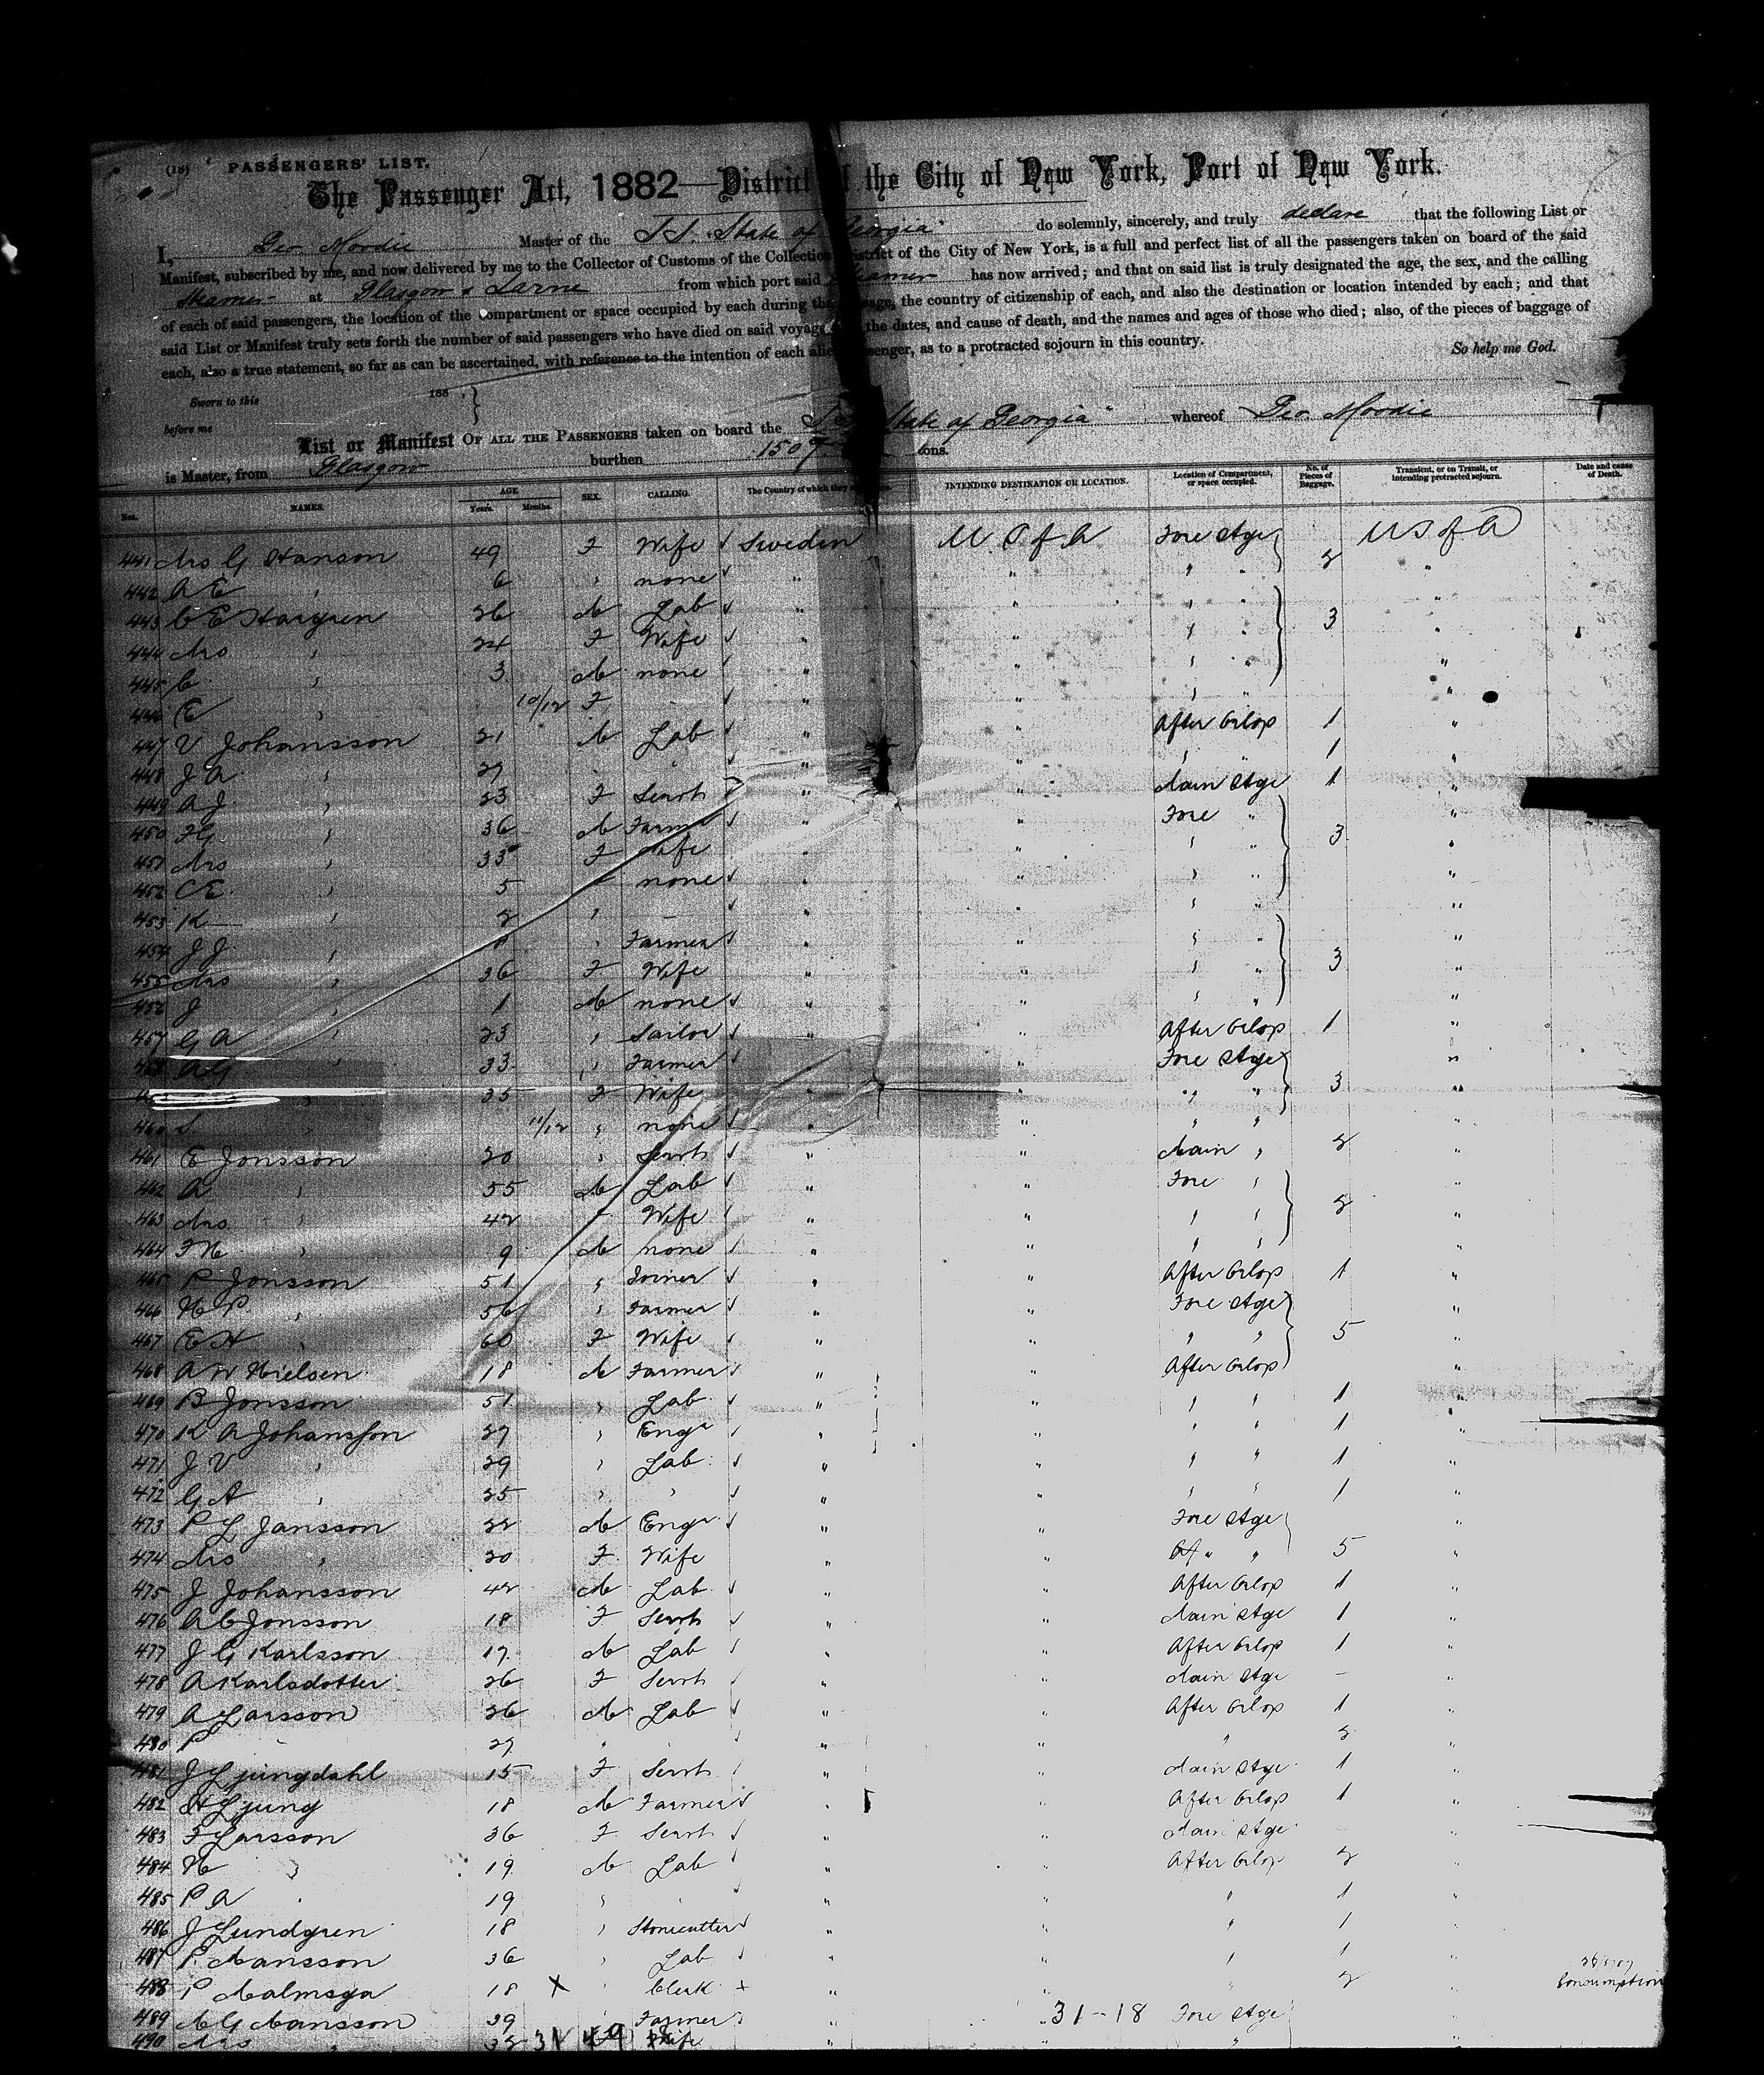 (18) PASSENGERS' LIST.
The Passenger Act, 1882—District of the City of New York, Port of New York.
I, Geo. Moodie Master of the S.S. "State of Georgia" do solemnly, sincerely, and truly declare that the following List or
Manifest, subscribed by me, and now delivered by me to the Collector of Customs of the Collection District of the City of New York, is a full and perfect list of all the passengers taken on board of the said
Steamer at Glasgow & Larne from which port said Steamer has now arrived; and that on said list is truly designated the age, the sex, and the calling
of each of said passengers, the location of the compartment or space occupied by each during the passage, the country of citizenship of each, and also the destination or location intended by each; and that
said List or Manifest truly sets forth the number of said passengers who have died on said voyage, the dates, and cause of death, and the names and ages of those who died; also, of the pieces of baggage of
each, also a true statement, so far as can be ascertained, with reference to the intention of each alien passenger, as to a protracted sojourn in this country. So help me God.
Sworn to this 188 ,}
before me
List or Manifest OF ALL THE PASSENGERS taken on board the "State of Georgia" whereof Geo. Moodie
is Master, from Glasgow burthen 1507 tons.
Nos. NAMES. AGE Years. Months. SEX. CALLING. The Country of which they INTENDING DESTINATION OR LOCATION. Location of Compartment, or space occupied. No. of Pieces of Baggage. Transient, or on Transit, or intending protracted sojourn. Date and cause of Death.
441 Mrs G Hanson 49 F Wife Sweden U.S of A Fore Stge 2 U S of A
442 A E " 6 " none " " " " "
443 C E Hargren 26 M Lab " " " " 3 "
444 Mrs " 24 F Wife " " " " "
445 C " 3 M none " " " " "
446 E " 10/12 F " " " " "
447 V Johansson 21 M Lab " " After Orlop 1 "
448 J A " 27 " " " " " 1 "
449 A J " 23 F Servt " " Main Stge 1 "
450 F G " 36 M Farmer " " Fore " 3 "
451 Mrs " 33 F Wife " " " " "
452 C E " 5 none " " " " "
453 K " 2 " " " " " " "
454 J J " " Farmer " " " " 3 "
455 Mrs " 36 F Wife " " " " "
456 J " 1 M none " " " " "
457 G A " 23 " Sailor " " After Orlop 1 "
458 A G " 33 " Farmer " " Fore Stge 3 "
" 35 F Wife " " " " "
460 S " 11/12 " none " " " " "
461 E Jonsson 20 " Servt " " Main " 2 "
462 A " 55 M Lab " " Fore " 2 "
463 Mrs " 42 F Wife " " " " "
464 F N " 9 M none " " " " "
465 P Jonsson 51 " Joiner " " After Orlop 1 "
466 N P " 56 " Farmer " " Fore Stge 5 "
467 E H " 60 F Wife " " " " "
468 A W Nielsen 18 M Farmer " " After Orlop "
469 B Jonsson 51 " Lab " " " " 1 "
470 K A Johansson 27 " Engr " " " " 1 "
471 J V " 29 " Lab " " " " 1 "
472 G A " 25 " " " " " " 1 "
473 P L Jansson 22 M Engr " " Fore Stge 5 "
474 Mrs " 20 F Wife " " " " "
475 J Johansson 42 M Lab " " After Orlop 1 "
476 A C Jonsson 18 F Servt " " Main Stge 1 "
477 J G Karlsson 17 M Lab " " After Orlop 1 "
478 A Karlsdotter 26 F Servt " " Main Stge - "
479 A Larsson 26 M Lab " " After Orlop 1 "
480 P " 27 " " " " " 2 "
481 J Ljungdahl 15 F Servt " " Main Stge 1 "
482 H Ljung 18 M Farmer " " After Orlop 1 "
483 F Larsson 36 F Servt " " Main Stge "
484 N " 19 M Lab " " After Orlop 2 "
485 P A " 19 " " " " " 1 "
486 J Lundgren 18 " Stonecutter " " " 1 "
487 P Mansson 36 " Lab " " " 1 "
488 P Malmsga 18 X " Clerk + " " " 2 " Consumption
489 M G Mansson 39 Farmer " " 31-18 Fore Stge "
490 Mrs " 32 31 49 F Wife " " " "